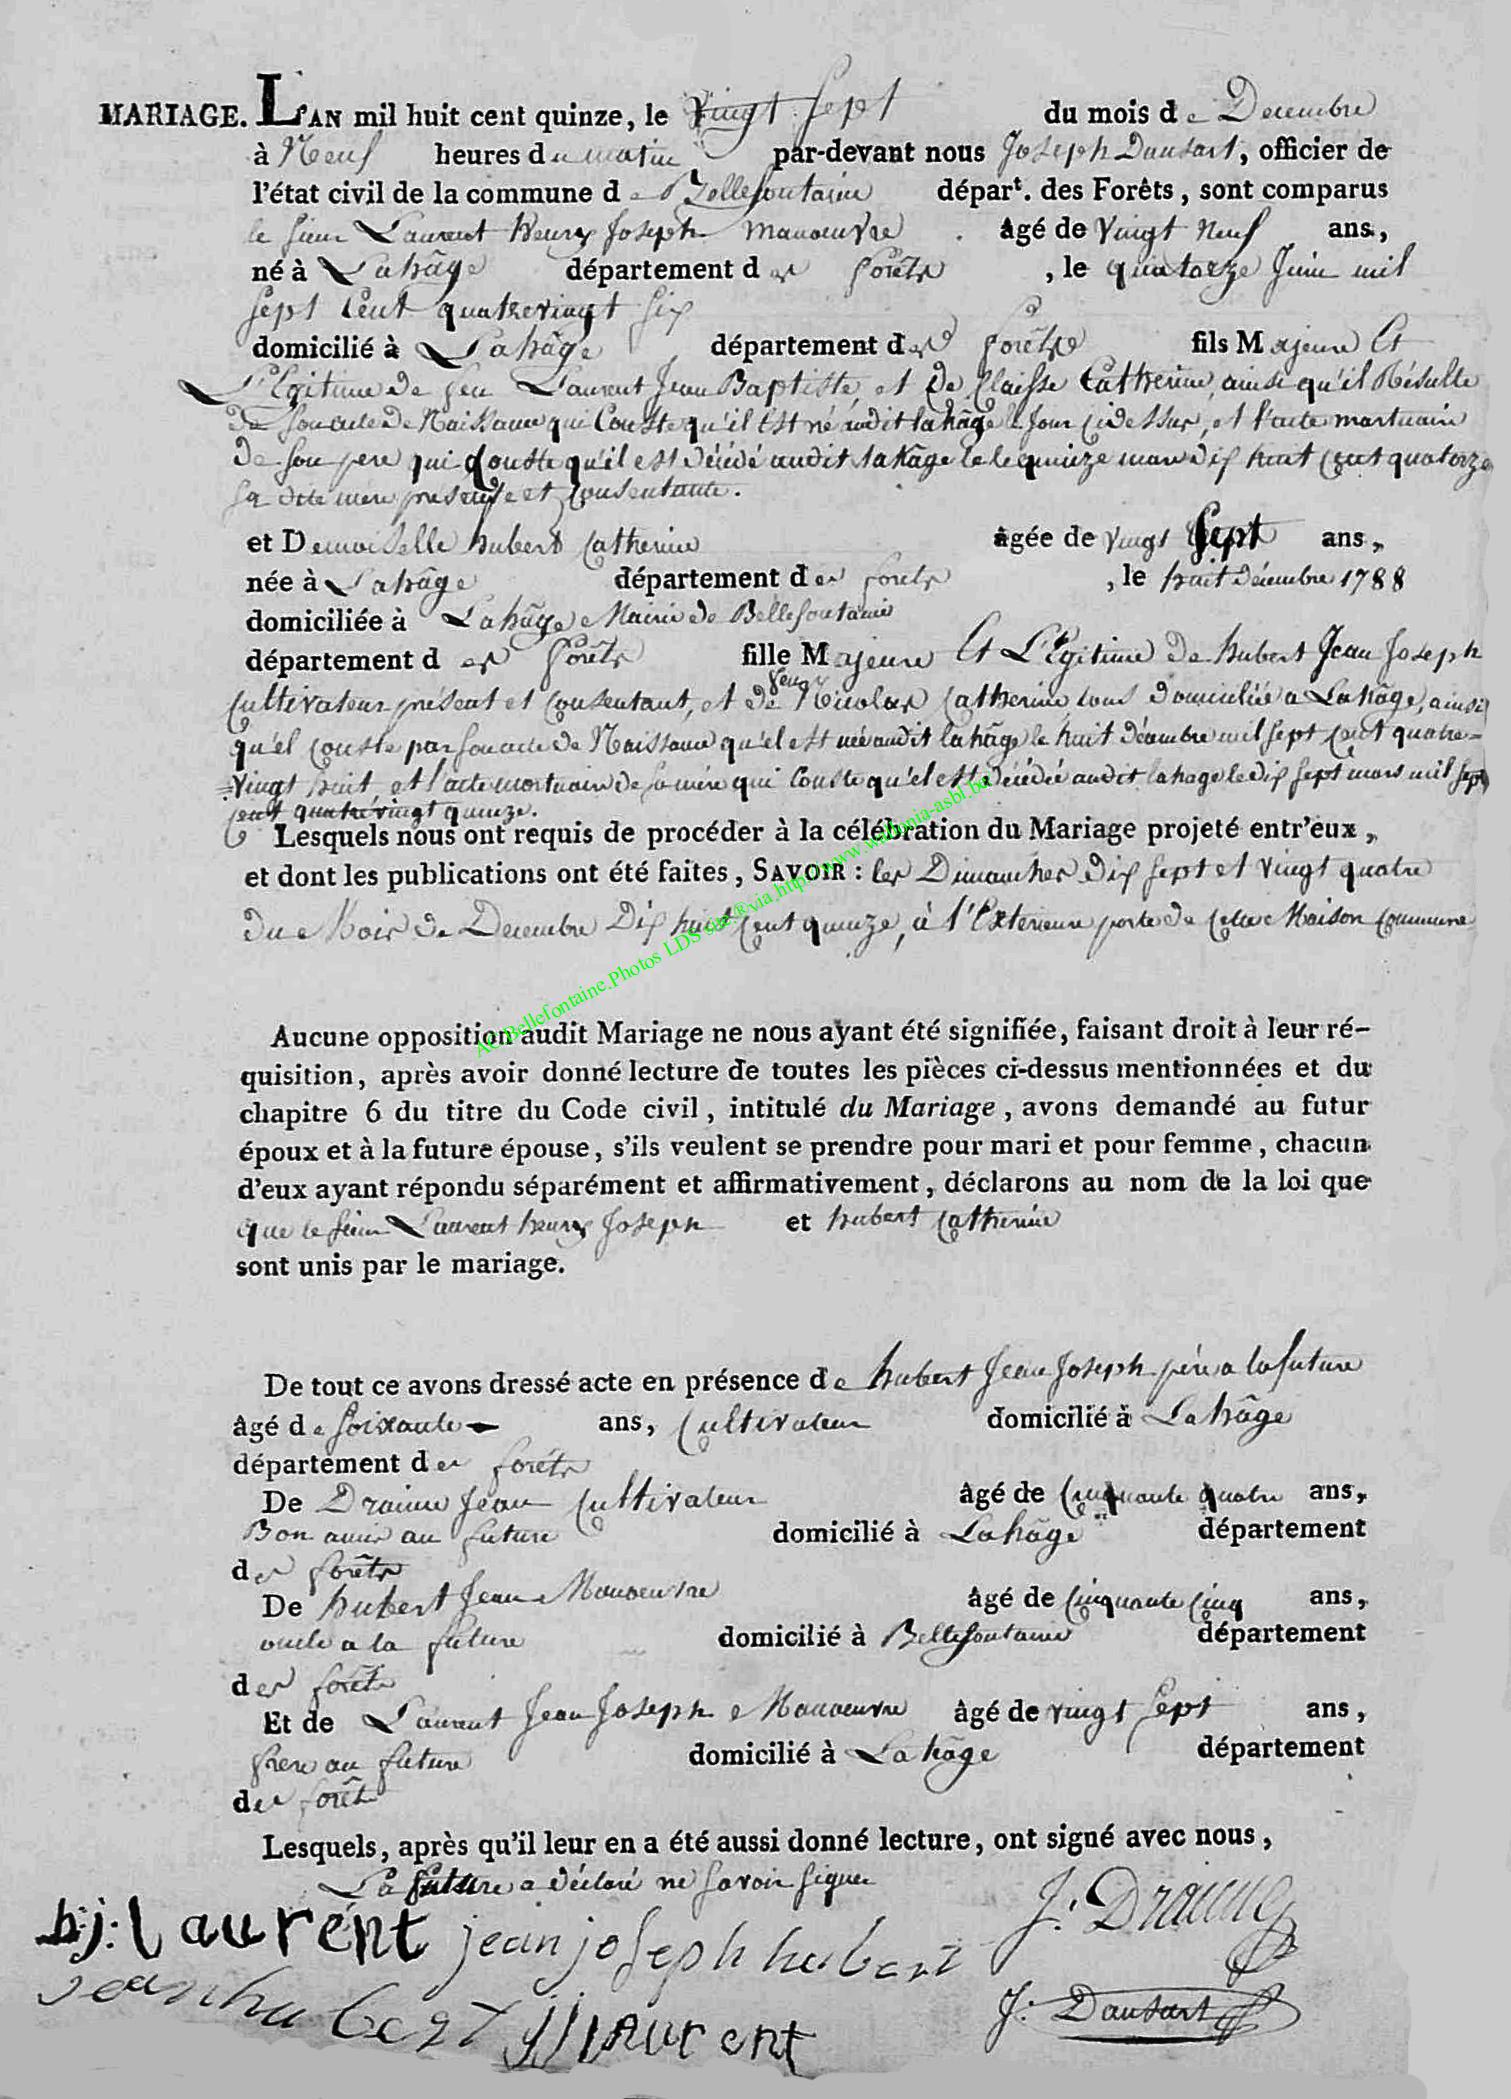 MARIAGE. L'AN mil huit cent quinze, le vingt sept du mois de Decembre
à Neuf heures du matin par-devant nous Joseph Dausart, officier de
l'état civil de la commune de Bellefontaine départ. des Forêts, sont comparus
le sieur Laurent henry Joseph manoeuvre âgé de vingt neuf ans,
né à Lahâge département des forêts, le quatorze Juin mil
sept cent quatrevingt six
domicilié à Lahâge département des forêts fils Majeure Et
L'Egitime de feu Laurent Jean Baptiste, et de Claisse Catherine, ainsi qu'il Résulte
de son acte de Naissance qui Conste qu'il Est né audit lahâge le Jour cidessus, et l'acte mortuaire
de son pere qui Conste qu'il est décédé audit lahâge le quinze mars dix huit cent quatorze
sa dite mere présente et consentante.
et Demoiselle hubert Catherine âgée de vingt sept ans,
née à Lahâge département des forêts, le huit décembre 1788
domiciliée à Lahâge Mairie de Bellefontaine
département des forêts fille Majeure Et L'Egitime de hubert Jean Joseph
Cultivateur présent et consentant, et de feu Nicolas Catherine tous domiciliée a Lahâge, ainsi
qu'el conste par son acte de Naissance qu'el est née audit lahâge le huit décembre mil sept cent quatre-
vingt huit et l'acte mortuaire de sa mere qui Conste qu'el est décédée audit lahage le dix sept mars mil sept
cent quatrévingt quinze.
Lesquels nous ont requis de procéder à la célébration du Mariage projeté entr'eux,
et dont les publications ont été faites, SAVOIR : les Dimanches dix sept et vingt quatre
du Mois de Decembre Dix huit cent quinze, à l'Exterieure porte de Maison Commune
Aucune opposition audit Mariage ne nous ayant été signifiée, faisant droit à leur ré-
quisition, après avoir donné lecture de toutes les pièces ci-dessus mentionnées et du
chapitre 6 du titre du Code civil, intitulé du Mariage, avons demandé au futur
époux et à la future épouse, s'ils veulent se prendre pour mari et pour femme, chacun
d'eux ayant répondu séparément et affirmativement, déclarons au nom de la loi que
que le sieur Laurent henry Joseph et hubert Catherine
sont unis par le mariage.
De tout ce avons dressé acte en présence de hubert Jean Joseph père a la future
âgé de soixante ans, Cultivateur domicilié à Lahâge
département des forêts
De Draime Jean Cultivateur âgé de Cinquante quatre ans,
Bon amis au future domicilié à Lahâge département
des forêts
De hubert Jean Manoeuvre âgé de Cinquante Cinq ans,
oncle a la future domicilié à Bellefontaine département
des forêts
Et de Laurent Jean Joseph Manoeuvre âgé de vingt sept ans,
frere au future domicilié à Lahâge département
des forêts
Lesquels, après qu'il leur en a été aussi donné lecture, ont signé avec nous,
La future a déclaré ne savoir signer
h:j: laurént jean joseph hubert J: Draime
jean hubert jjlaurent J: Dausart
AC Bellefontaine.Photos LDS site®via http://www.wallonia-asbl.be/